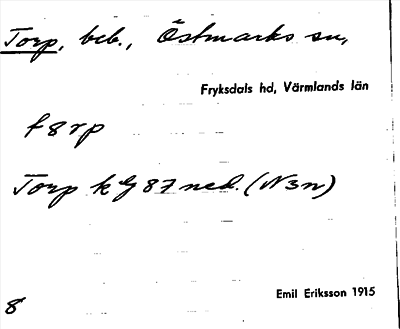 Torp, beb., Östmarks sn,
Fryksdals hd, Värmlands län
Torp kG 87 ned. (N3n)
Emil Eriksson 1915
8